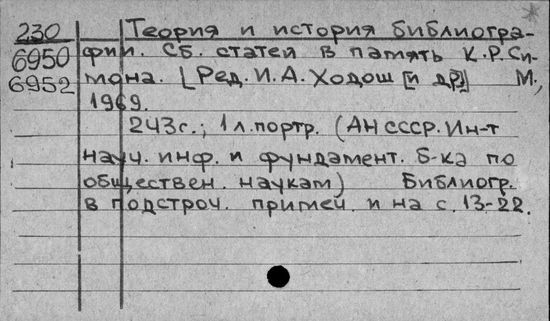 230 Теория и история библиогра-
6950 фии. Сб. статей в память К.Р.Си-
6952 мона. [Ред. И.А. Ходош [и др.]] М.,
1969.
243с.; 1 л.портр. (АН СССР. Ин-т
науч. инф. и фундамент. б-ка по
обществен. наукам) Библиогр.
в подстроч. примеч. и на с. 13-22.